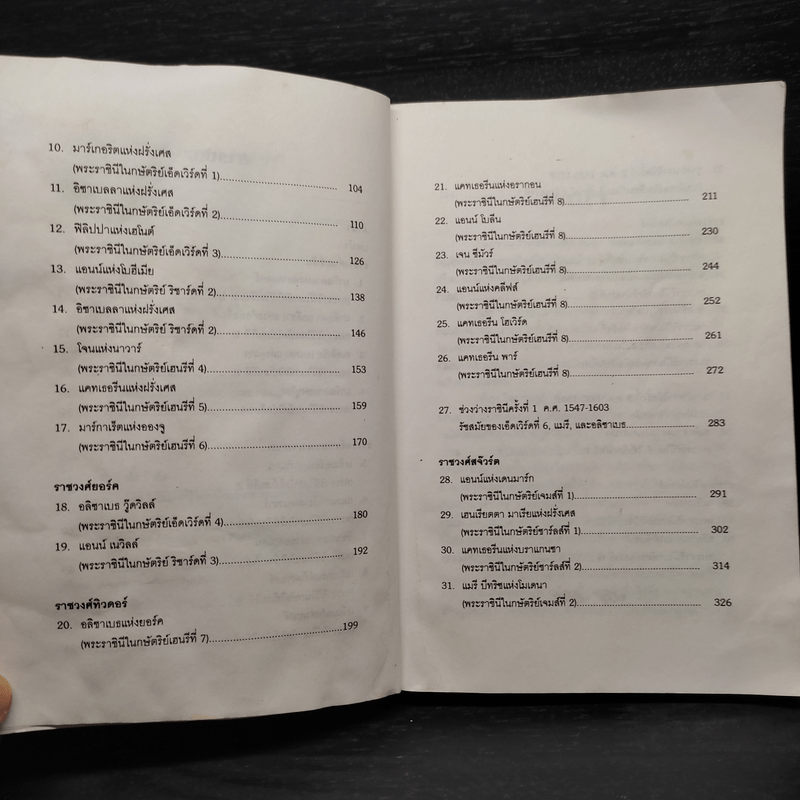 10. มาร์เกอริตแห่งฝรั่งเศส
(พระราชินีในกษัตริย์เอ็ดเวิร์ดที่ 1)........................ 104
11. อิซาเบลลาแห่งฝรั่งเศส
(พระราชินีในกษัตริย์เอ็ดเวิร์ดที่ 2)........................ 110
12. ฟิลิปปาแห่งเฮโนต์
(พระราชินีในกษัตริย์เอ็ดเวิร์ดที่ 3)........................ 126
13. แอนน์แห่งโบฮีเมีย
(พระราชินีในกษัตริย์ ริชาร์ดที่ 2)........................ 138
14. อิซาเบลลาแห่งฝรั่งเศส
(พระราชินีในกษัตริย์ ริชาร์ดที่ 2)........................ 146
15. โจนแห่งนาวาร์
(พระราชินีในกษัตริย์เฮนรีที่ 4)........................ 153
16. แคทเธอรีนแห่งฝรั่งเศส
(พระราชินีในกษัตริย์เฮนรีที่ 5)........................ 159
17. มาร์กาเร็ตแห่งอองจู
(พระราชินีในกษัตริย์เฮนรีที่ 6)........................ 170
ราชวงศ์ยอร์ค
18. อลิซาเบธ วู๊ดวิลล์
(พระราชินีในกษัตริย์เอ็ดเวิร์ดที่ 4)........................ 180
19. แอนน์ เนวิลล์
(พระราชินีในกษัตริย์ ริชาร์ดที่ 3)........................ 192
ราชวงศ์ทิวดอร์
20. อลิซาเบธแห่งยอร์ค
(พระราชินีในกษัตริย์เฮนรีที่ 7)........................199
21. แคทเธอรีนแห่งอรากอน
(พระราชินีในกษัตริย์เฮนรีที่ 8)........................ 211
22. แอนน์ โบลีน
(พระราชินีในกษัตริย์เฮนรีที่ 8)........................ 230
23. เจน ซีมัวร์
(พระราชินีในกษัตริย์เฮนรีที่ 8)........................ 244
24. แอนน์แห่งคลีฟส์
(พระราชินีในกษัตริย์เฮนรีที่ 8)........................ 252
25. แคทเธอรีน โฮเวิร์ด
(พระราชินีในกษัตริย์เฮนรีที่ 8)........................ 261
26. แคทเธอรีน พาร์
(พระราชินีในกษัตริย์เฮนรีที่ 8)........................ 272
27. ช่วงว่างราชินีครั้งที่ 1 ค.ศ. 1547-1603
รัชสมัยของเอ็ดเวิร์ดที่ 6, แมรี, และอลิซาเบธ........................ 283
ราชวงศ์สจ๊วร์ต
28. แอนน์แห่งเดนมาร์ก
(พระราชินีในกษัตริย์เจมส์ที่ 1)........................ 291
29. เฮนเรียตตา มาเรียแห่งฝรั่งเศส
(พระราชินีในกษัตริย์ชาร์ลส์ที่ 1)........................ 302
30. แคทเธอรีนแห่งบราแกนซา
(พระราชินีในกษัตริย์ชาร์ลส์ที่ 2)........................ 314
31. แมรี บีทริซแห่งโมเดนา
(พระราชินีในกษัตริย์เจมส์ที่ 2)........................ 326